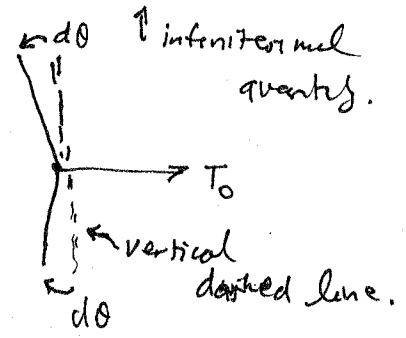 dθ
↑ infinitesimal
quantity.
T₀
vertical
dashed line.
dθ